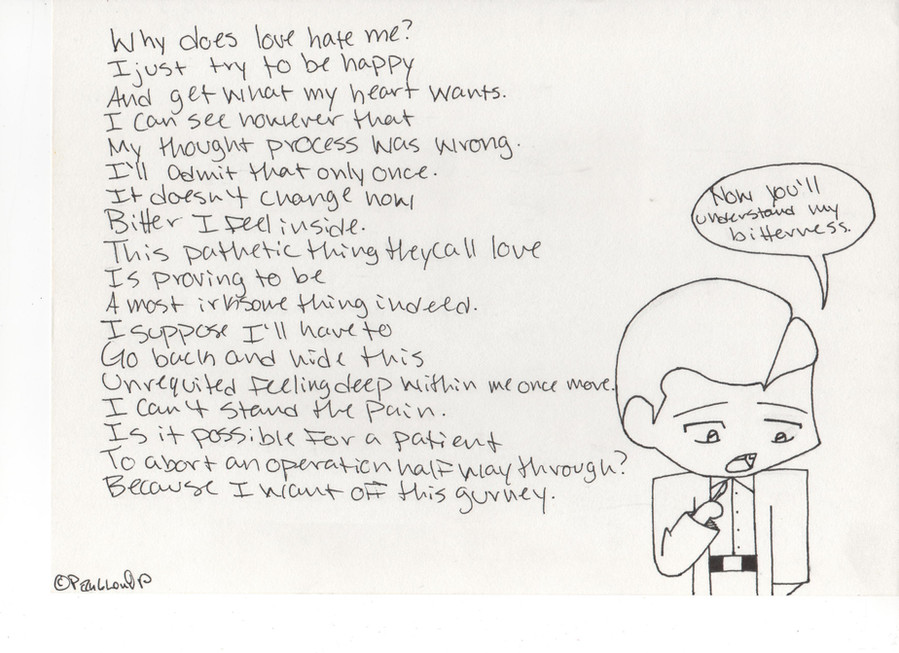 Why does love hate me?
I just try to be happy
And get what my heart wants.
I can see however that
My thought process was wrong.
I'll admit that only once.
It doesn't change how
Bitter I feel inside.
This pathetic thing they call love
Is proving to be
A most irksome thing indeed.
I suppose I'll have to
Go back and hide this
Unrequited feeling deep within me once more.
I can't stand the pain.
Is it possible for a patient
To abort an operation half way through?
Because I want off this gurney.
Now you'll
understand my
bitterness.
©